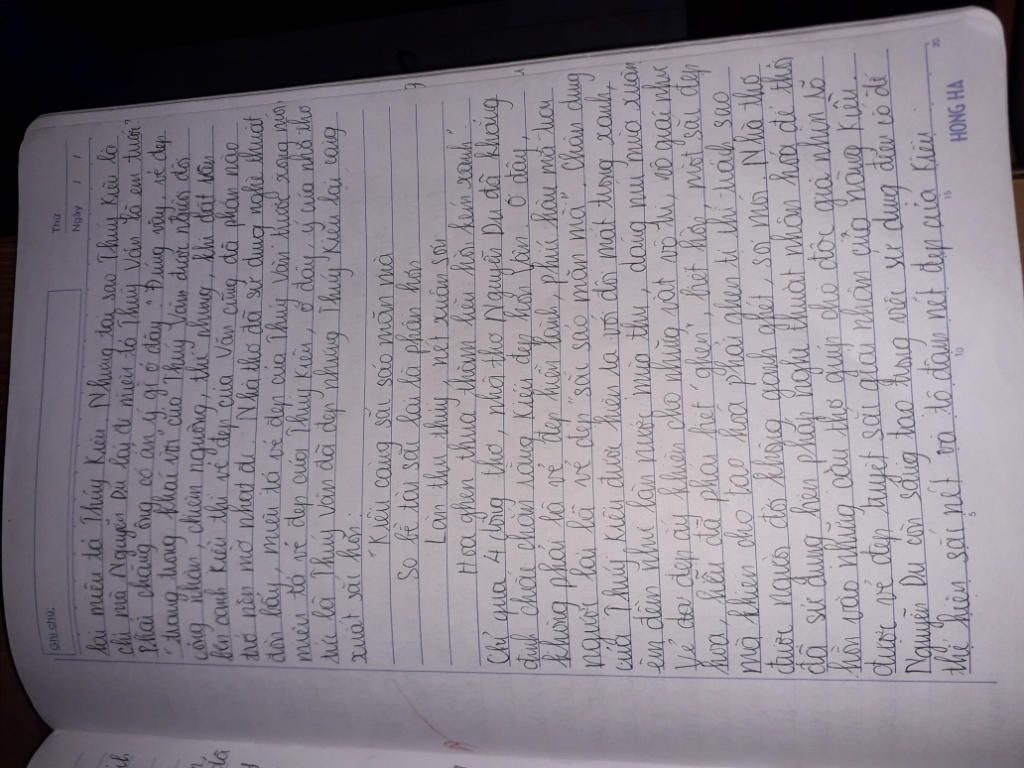 Ghi chú:
Thứ
Ngày / /
lại miêu tả Thúy Kiều. Nhưng tại sao Thúy Kiều là
chị mà Nguyễn Du lại đi miêu tả Thúy Vân là em trước?
Phải chăng ông có ẩn ý gì ở đây. Đúng vậy, vẻ đẹp
"trang trọng khác vời" của Thúy Vân được người đời
công nhận, chiêm ngưỡng, thế nhưng, khi đặt nên
kế cạnh Kiều thì vẻ đẹp của Vân cũng đã phần nào
trở nên mờ nhạt đi. Nhà thơ đã sử dụng nghệ thuật
đòn bẩy, miêu tả vẻ đẹp của Thúy Vân trước xong mới
miêu tả vẻ đẹp của Thúy Kiều, ở đây, ý của nhà thơ
tức là Thúy Vân đã đẹp nhưng Thúy Kiều lại càng
xuất sắc hơn.
"Kiều càng sắc sảo mặn mà
So bề tài sắc lại là phần hơn
Làn thu thủy, nét xuân sơn
Hoa ghen thua thắm liễu hờn kém xanh"
Chỉ qua 4 công thơ, nhà thơ Nguyễn Du đã khẳng
định chắc chắn rằng Kiều đẹp hơn Vân. Ở đây,
không phải là vẻ đẹp hiền lành, phúc hậu mà thay
người lại là vẻ đẹp "sắc sảo mặn mà". Chân dung
của Thúy Kiều được hiện ra với đôi mắt trong xanh,
êm đềm như làn nước mùa thu, dáng núi mùa xuân
Vẻ đẹp ấy khiến cho những vật vô tri, vô giác như
hoa, liễu đã phải hết "ghen", hết hờn, một sắc đẹp
mà khiến cho tạo hoá phải ghen tị thì tránh sao
được người đời không ganh ghét, soi mói. Nhà thơ
đã sử dụng biện pháp nghệ thuật nhân hóa để thổi
hồn vào những câu thơ giúp cho độc giả nhìn rõ
được vẻ đẹp tuyệt sắc giai nhân của nàng Kiều.
Nguyễn Du còn sáng tạo trong việc sử dụng điện cố để
thể hiện sắc nét và tô đậm nét đẹp của Kiều
5
10
15
20
HONG HA